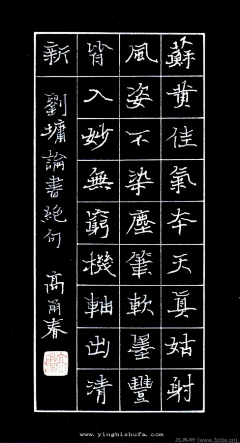 蘇黄佳氣本天真姑射
風姿不染塵筆軟墨豐
皆入妙無窮機軸出清
新
劉墉論書絶句 高甬春
www.yingbishufa.com